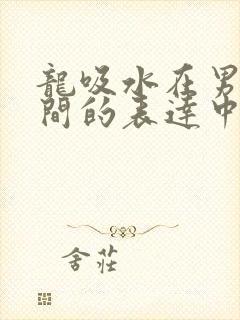 龍吸水在男
間的表達中
舍莊